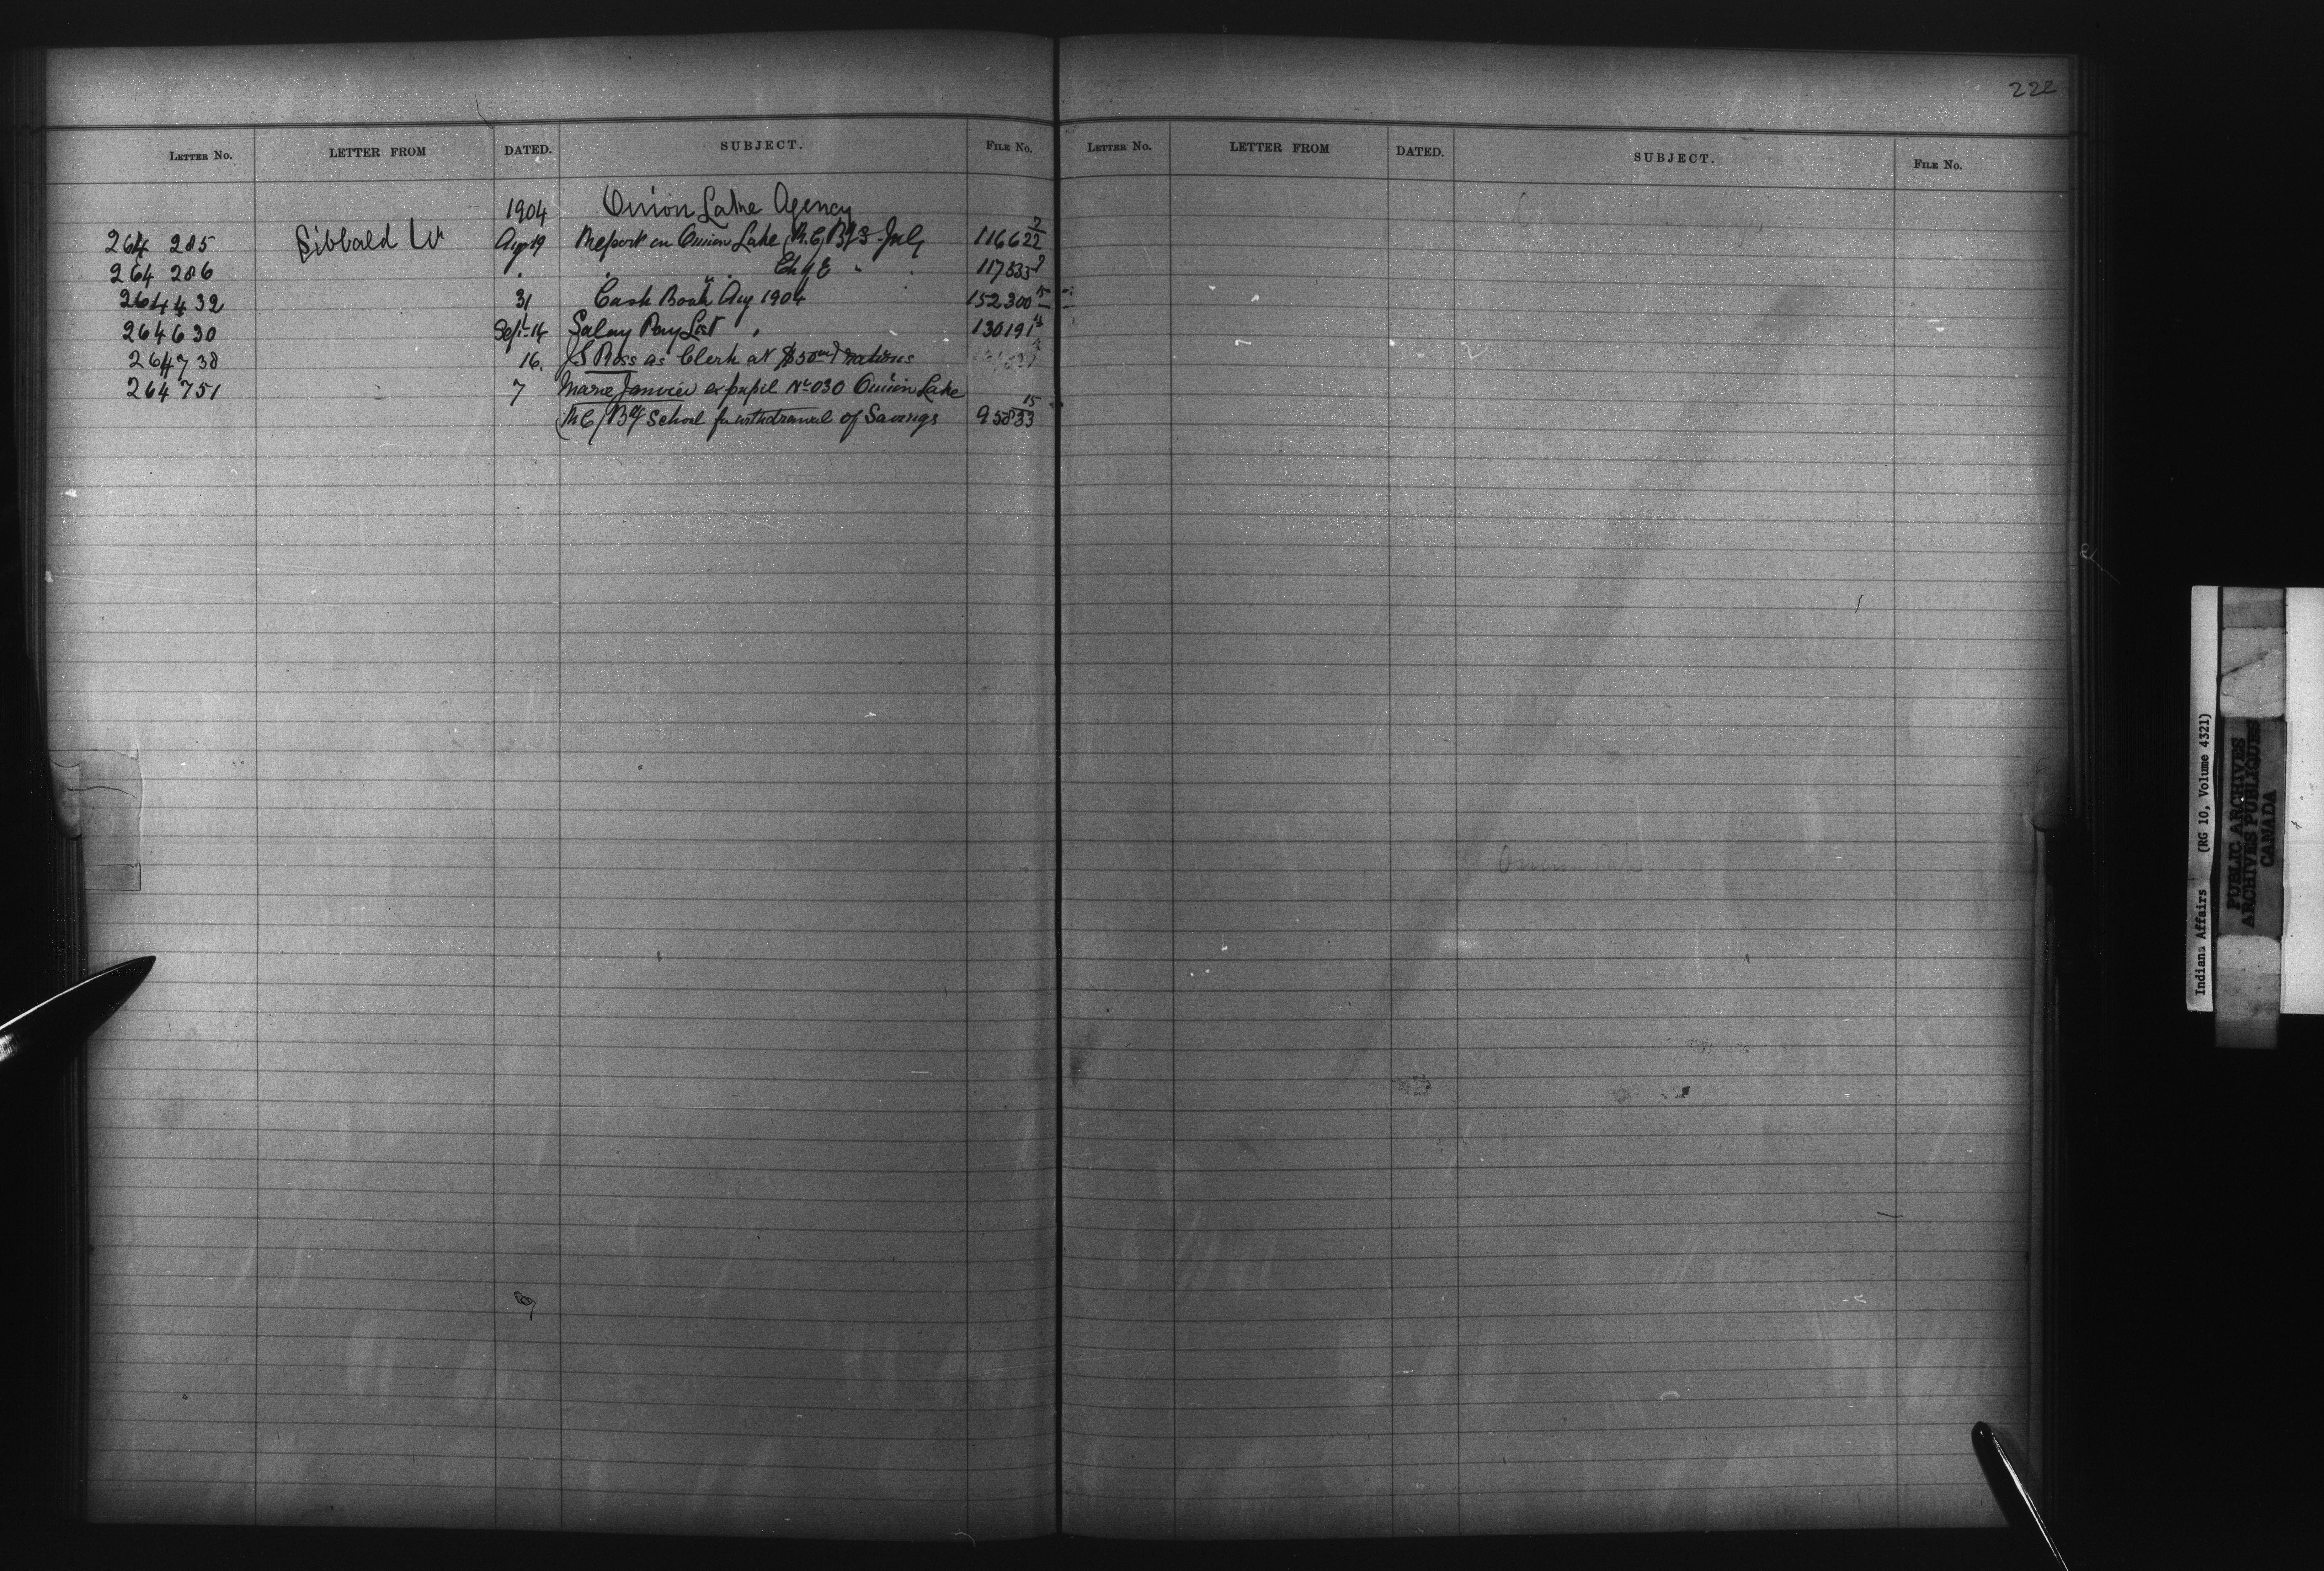 222
LETTER NO. LETTER FROM DATED. SUBJECT. FILE NO. LETTER NO. LETTER FROM DATED. SUBJECT. FILE NO.
1904 Onion Lake Agency
264 285 Sibbald W Aug 19 Report on Onion Lake (R.C) B/S July 116622 7/2
264 286 " " " Ch of E " " 117535
264432 31 Cash Book Aug 1904 152300 15
264630 Sept 14 Salary Pay List " 130191
264738 16. J S Ross as Clerk at $50 and rations
264751 7 Marie Janvier ex pupil No 030 Onion Lake
(R C) Bdg School for withdrawal of Savings 95833 15
Onion Lake
Indians Affairs (RG 10, Volume 4321)
PUBLIC ARCHIVES
ARCHIVES PUBLIQUES
CANADA